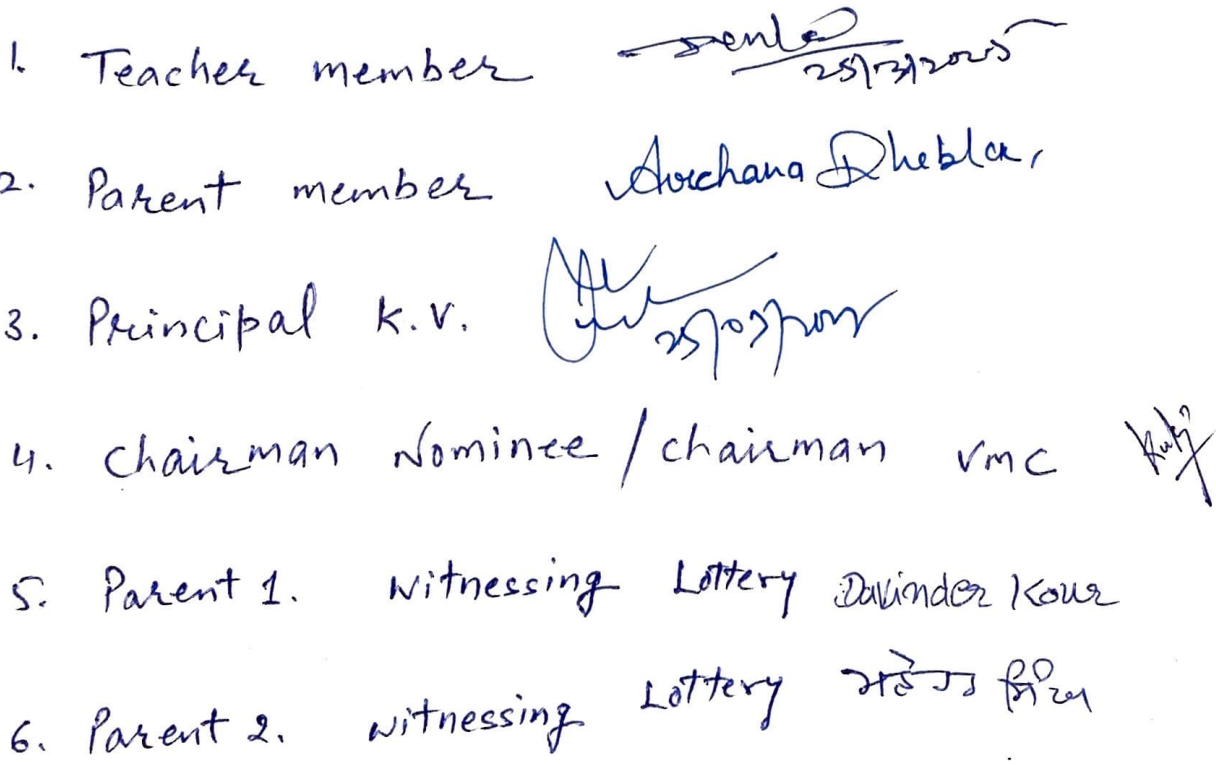 1. Teacher member 25/03/2025
2. Parent member Archana Dhebla,
3. Principal K.V. 25/03/2025
4. Chairman Nominee / chairman VMC
5. Parent 1. Witnessing Lottery Davinder Kour
6. Parent 2. witnessing Lottery